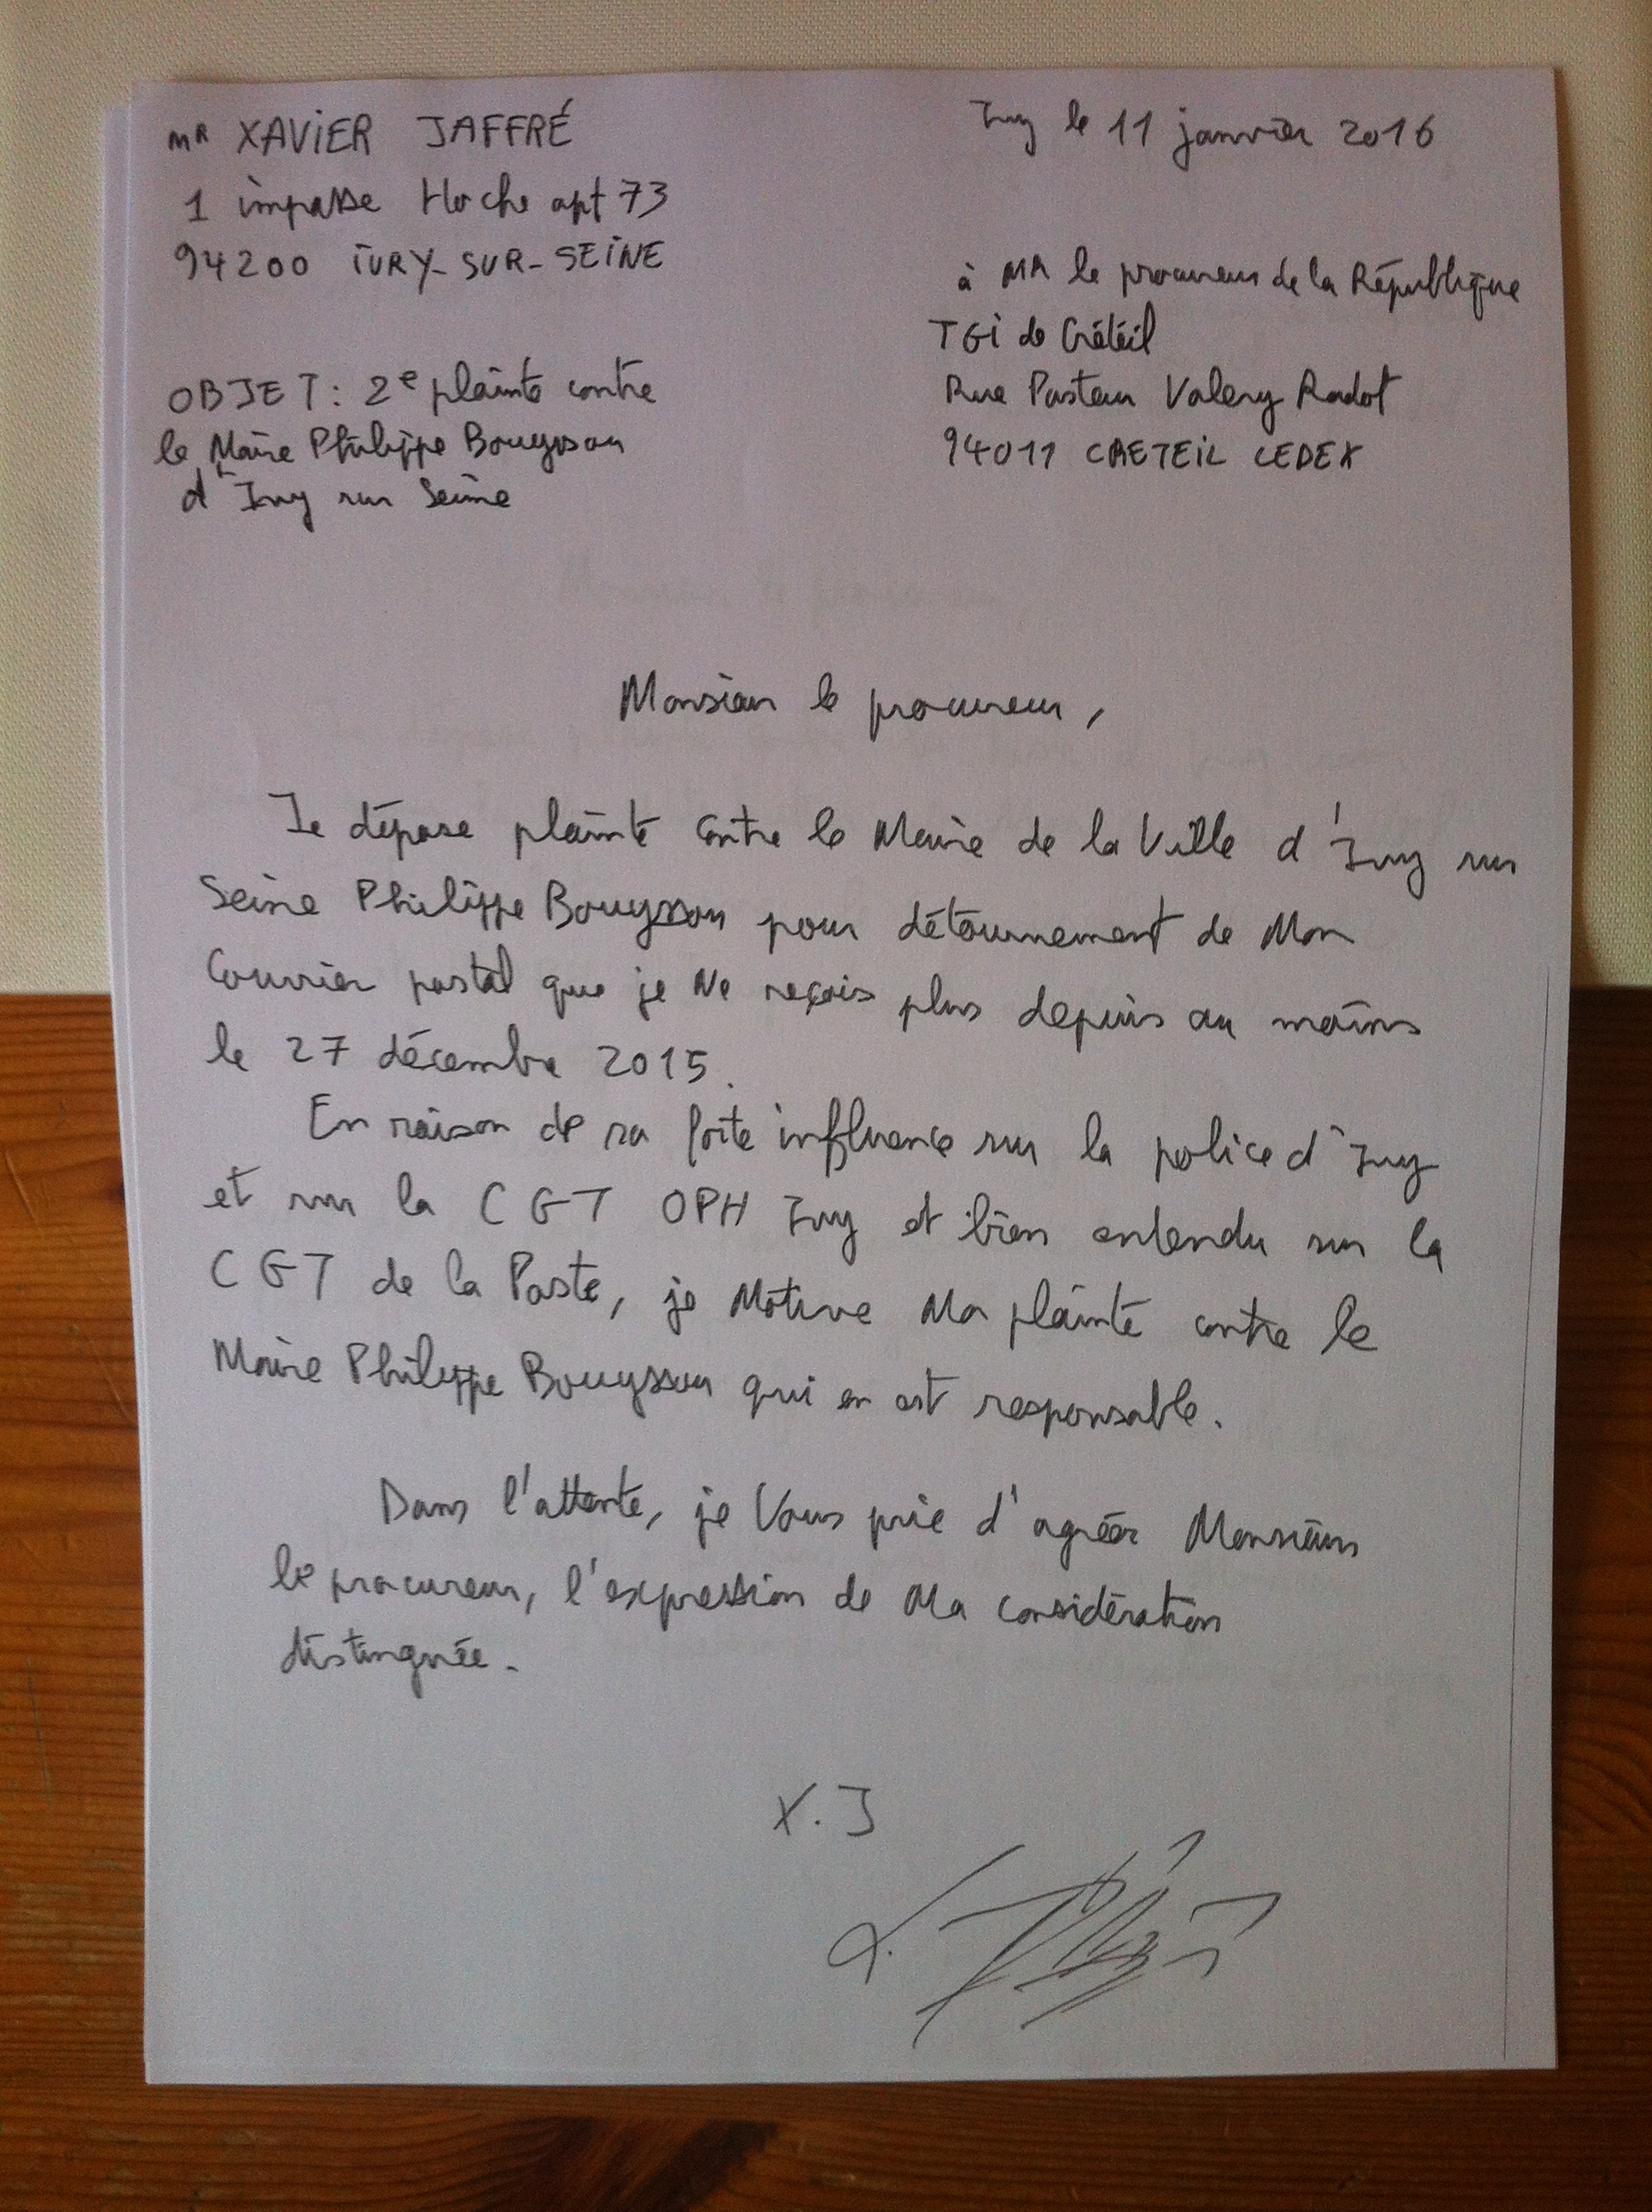 MR XAVIER JAFFRÉ
1 impasse Hoche apt 73
94200 IVRY-SUR-SEINE
Ivry le 11 janvier 2016
à MR le procureur de la République
TGI de Créteil
Rue Pasteur Valery Radot
94011 CRETEIL CEDEX
OBJET : 2e plainte contre
le Maire Philippe Bouyssou
d'Ivry sur Seine
Monsieur le procureur,
Je dépose plainte contre le Maire de la Ville d'Ivry sur
Seine Philippe Bouyssou pour détournement de Mon
Courrier postal que je Ne reçois plus depuis au moins
le 27 décembre 2015.
En raison de sa forte influence sur la police d'Ivry
et sur la CGT OPH Ivry et bien entendu sur la
CGT de la Poste, je Motive Ma plainte contre le
Maire Philippe Bouyssou qui en est responsable.
Dans l'attente, je Vous prie d'agréer Monsieur
le procureur, l'expression de Ma considération
distinguée.
X.J